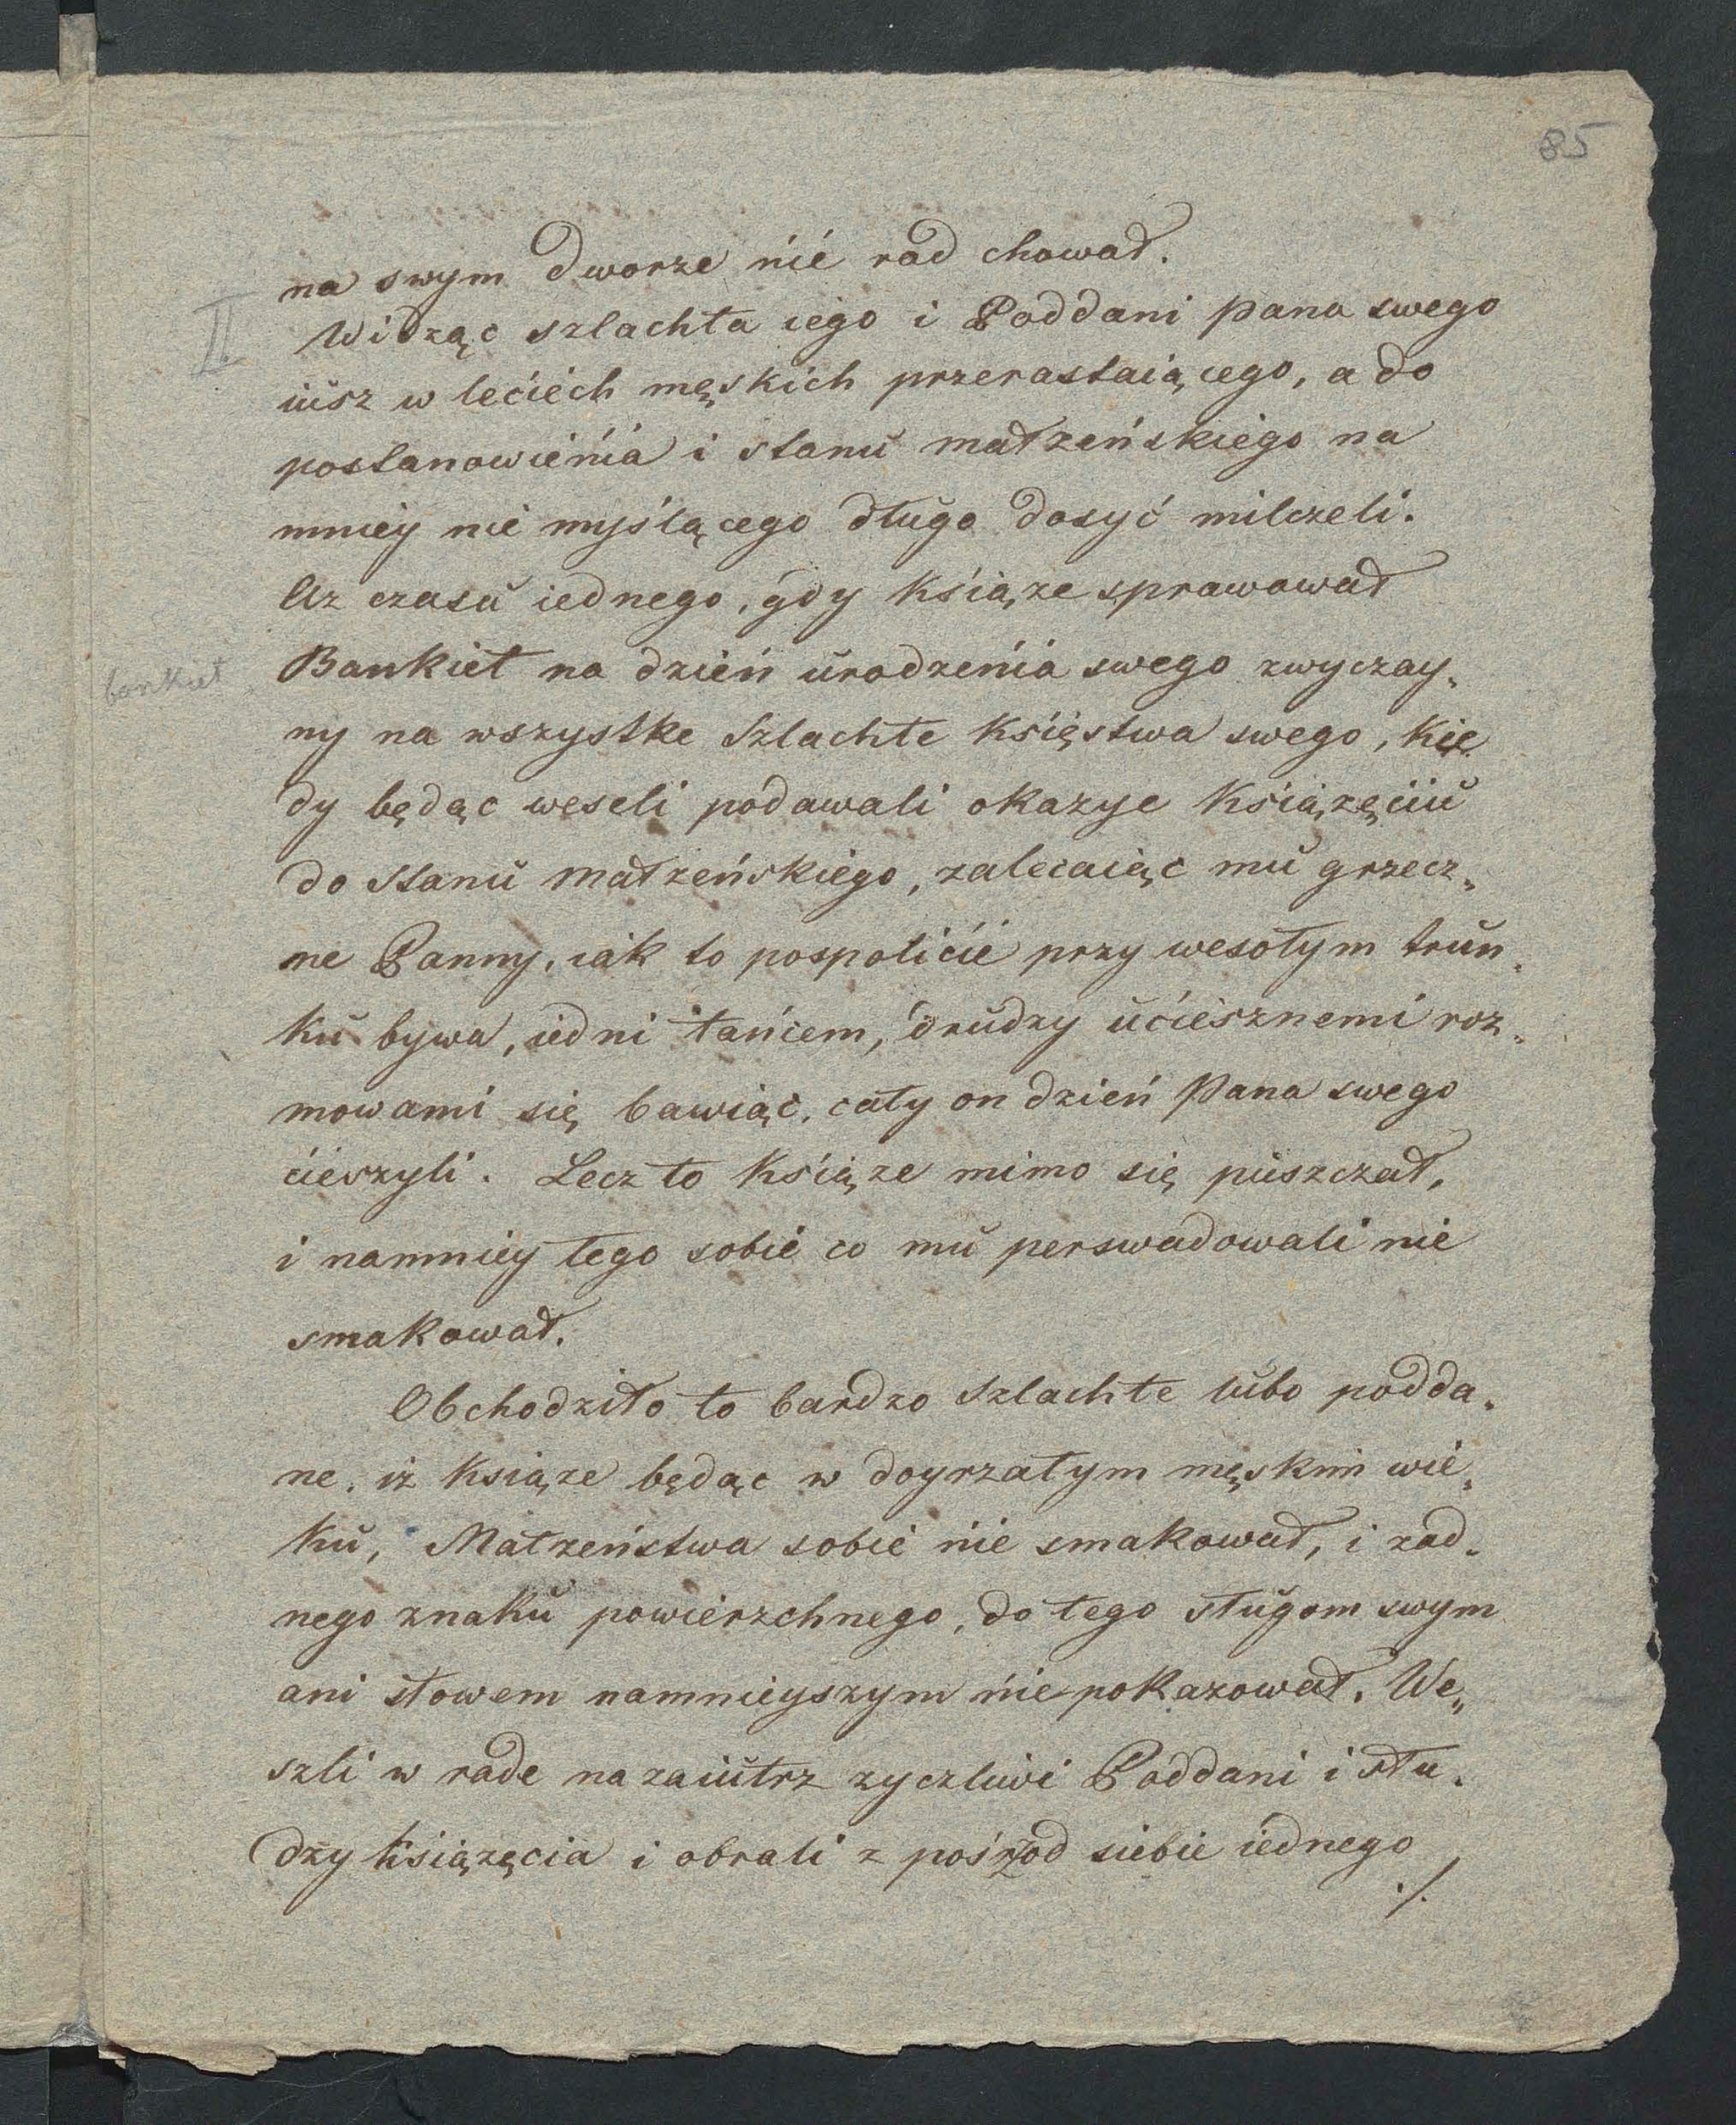 85
na swym Dworze nié rad chował.
II. Widząc szlachta iego i Poddani Pana swego
iusz w leciéch męskich przerastaiącego, a do
postanowiénia i stanu małżeńskiego na
mniey nie myślącego długo dosyć milczeli.
Az czasu iednego, gdy Ksiąze sprawował
bankiet
Bankiet na dzień urodzenia swego zwyczay„
ny na wszystke Szlachte Księstwa swego, kie
dy będąc weseli podawali okazye Ksiązęciu
do stanu małzeńskiego, zalecaiąc mu grzecz„
ne Panny, iak to pospolicie przy wesołym trun„
ku bywa, iedni tańcem, drudzy uciesznemi roz„
mowami się bawiąc, cały on dzień Pana swego
cieszyli. Lecz to Ksiąze mimo się puszczał,
i namniey tego sobie co mu perswadowali nie
smakował.
Obchodziło to bardzo Szlachte lubo podda„
ne, iz Ksiąze będąc w doyrzałym męskim wie„
ku, Małzeństwa sobie nie smakował, i zad„
nego znaku powierzchnego, do tego sługom swym
ani słowem namnieyszym nie pokazował. We„
szli w rade nazaiutrz zyczliwi Poddani i słu„
dzy Ksiązęcia i obrali z pośrzod siebie iednego
./.